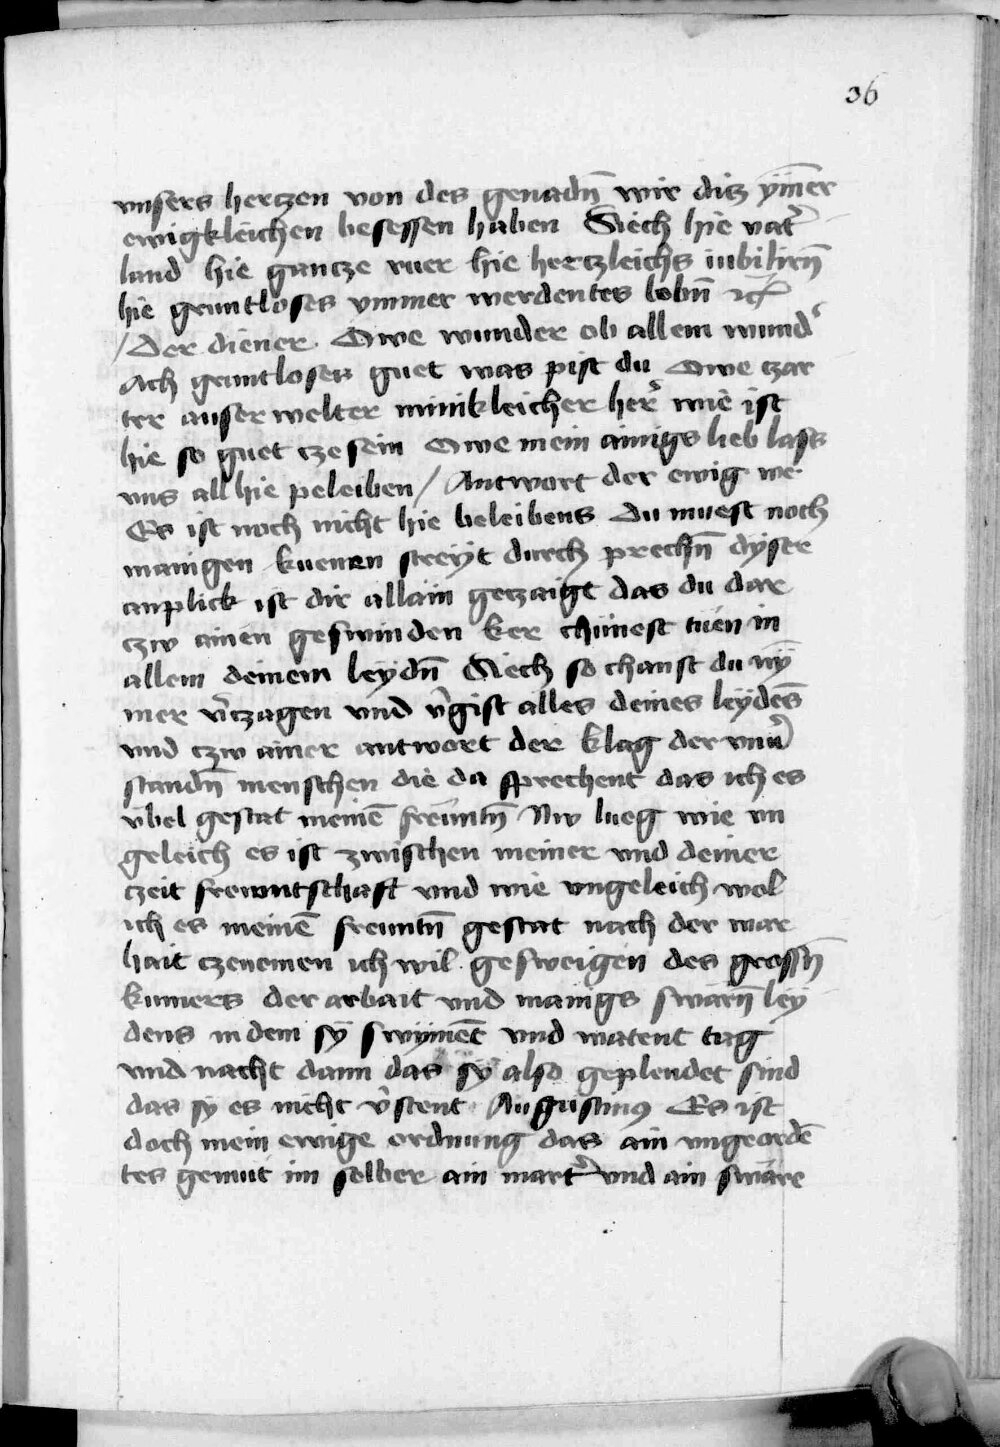 36
vnsers hertzen von des genadn̄ wir ditz ÿm̄er
ewigkleichen besessen haben Siech hie vat̓
land hie gantze ruer hie hertzleichs iubilirn̄
hie gruntloses ymmer werdentes lobn̄ ⁊c̄
/ Der diener Owe wunder ob allem wund̓
Ach gruntloses guet was pist du Owe czar
ter auserwelter minikleicher her̓ wie ist
hie so guet cze sein Owe mein ainigs lieb lass
vns all hie peleiben / Antwort der ewig we
Es ist noch nicht hie beleibens Du muest noch
manigen kuenen streÿt durch prechn̄ dÿser
anplick ist dir allain getzaigt das du dar
czw ainen geswinden ker chünest tuen in
allem deinem leÿdn̄ Siech so chanst du nÿ
mer v̓czagen vnd v̓gist alles deines leÿdēs
vnd czw ainer antwort der klag der vnu̓
standn̄ menschen die da sprechent das ich es
vbel gestat meinē freuntn̄ Nw lueg wie vn
geleich es ist zwischen meiner vnd deiner
czeit freuntschaft vnd wie vngeleich wol
ich es meinē freuntn̄ gestat nach der war
hait czenemen ich wil gesweigen des grossn̄
kumers der arbait vnd manigs swarn̄ leÿ
dens in dem sÿ swÿmēt vnd watent tag
vnd nacht dann das sÿ also geplendet sind
das sÿ es nicht v̓stent Augustinꝰ Es ist
doch mein ewige ordnung das ain vngeordē
tes gemut im selber ain mart̓ vnd ain sware